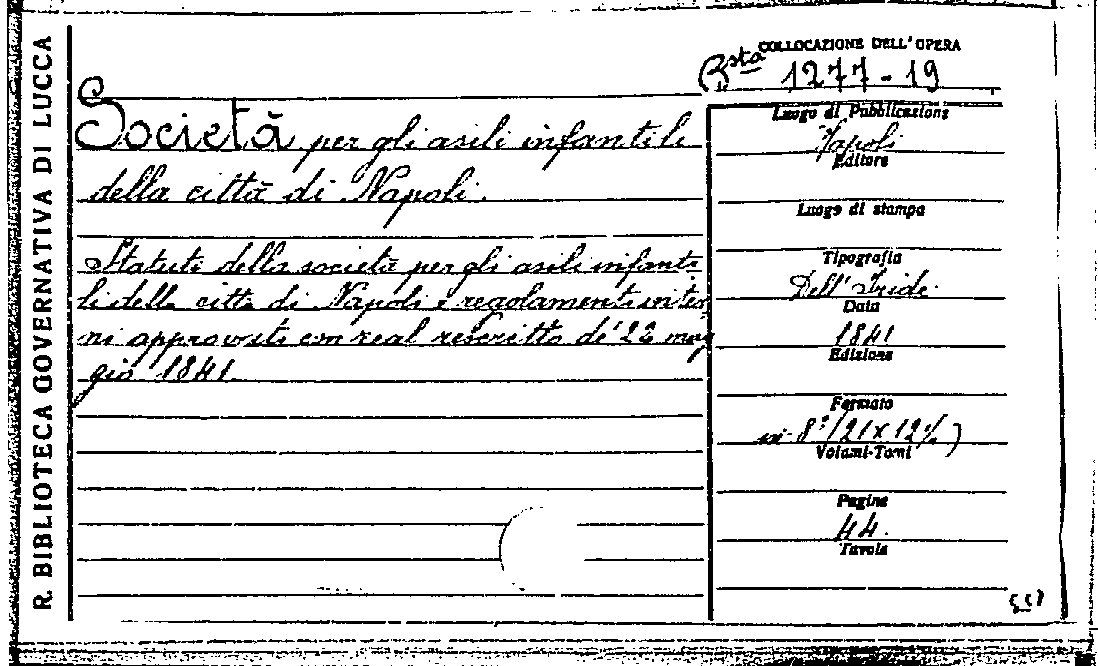 R. BIBLIOTECA GOVERNATIVA DI LUCCA
COLLOCAZIONE DELL'OPERA
Bsta 1277-19
Società per gli asili infantili
della città di Napoli.
Statuti della società per gli asili infanti
li della città di Napoli e regolamenti inter
ni approvati con real rescritto de' 22 mag
gio 1841
Luogo di Pubblicazione
Napoli
Editore
Luogo di stampa
Tipografia
Dell'Iride.
Data
1841
Edizione
Formato
in-8°/21x12½)
Volumi-Tomi
Pagine
44.
Tavole